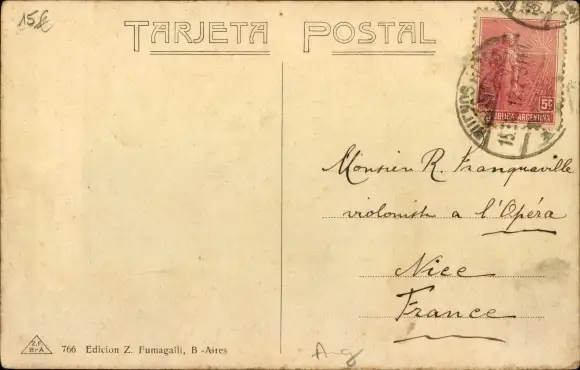 15€
TARJETA POSTAL
5c
REPUBLICA ARGENTINA
Monsieur R. Franqueville
violoniste a l'Opéra
Nice
France
Z.F.
Bs-A
766 Edicion Z. Fumagalli, B -Aires
Arg